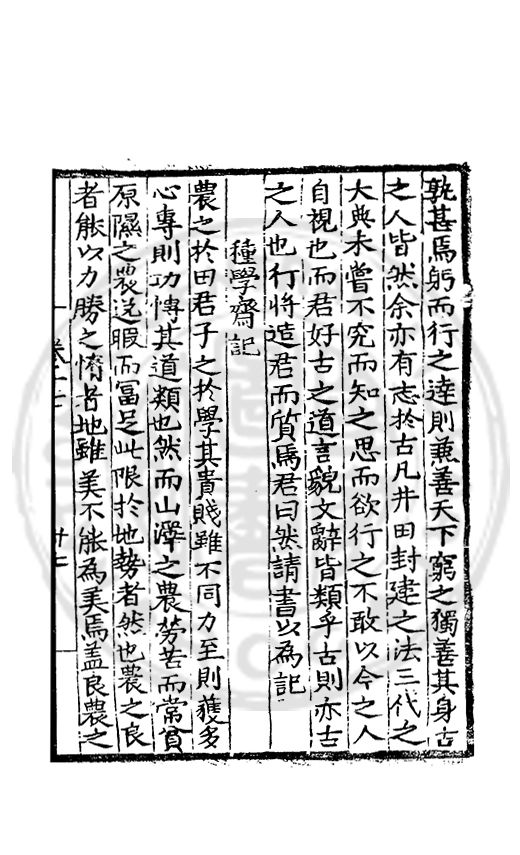 孰甚焉躬而行之達則兼善天下窮之獨善其身古
之人皆然余亦有志於古凡井田封建之法三代之
大典未嘗不究而知之思而欲行之不敢以今之人
自視也而君好古之道言貌文辭皆類乎古則亦古
之人也行將造君而質焉君曰然請書以為記
種學齋記
農之於田君子之於學其貴賤雖不同力至則獲多
心專則功博其道類也然而山澤之農勞苦而常貧
原隰之農逸暇而富足此限於地勢者然也農之良
者能以力勝之惰者地雖美不能為美焉蓋良農之